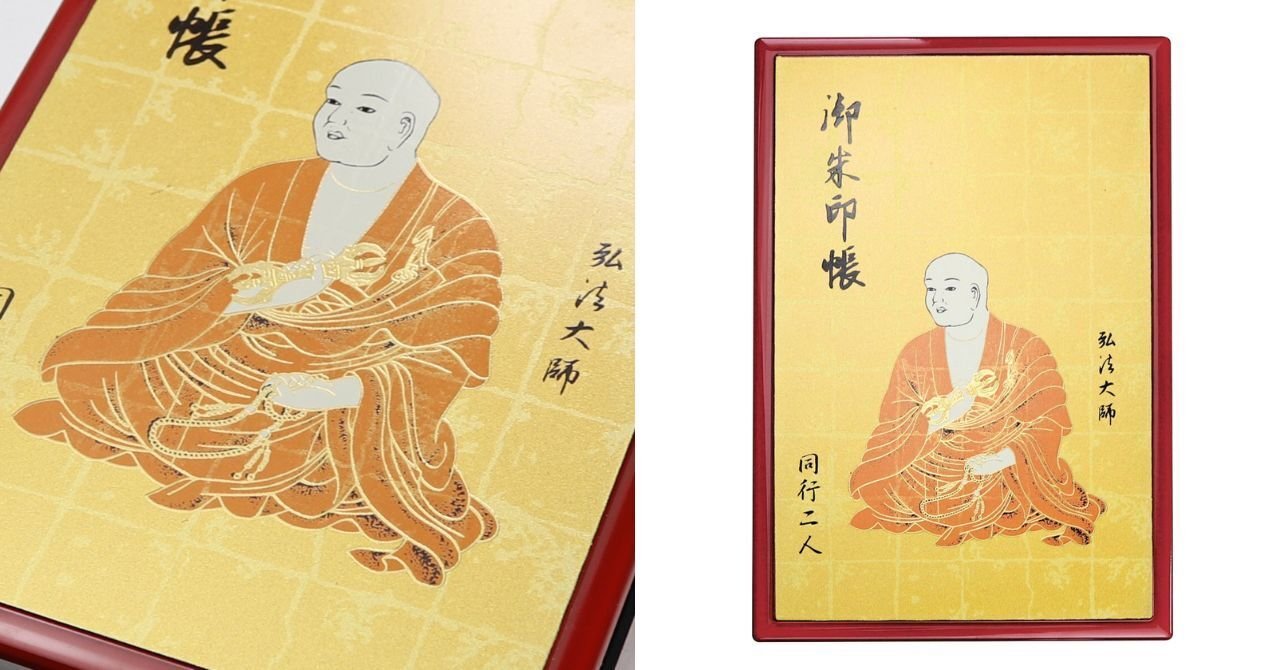 帳
弘法大師
御朱印帳
弘法大師
同行二人